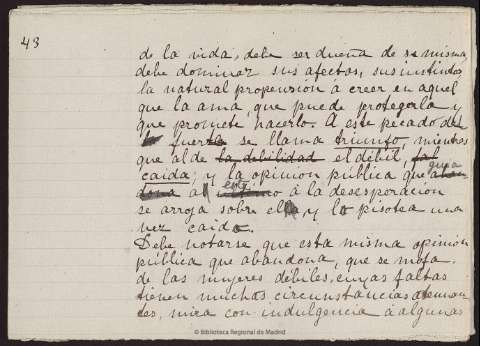 43
de la vida, debe ser dueña de se misma,
debe dominar sus afectos, sus instintos,
la natural propensión a creer en aquel
que la ama, que puede protegerla y
que promete hacerlo. A este pecado del
fuerte se llama triunfo, mientras
que al de la debilidad el débil,
caida; y la opinion pública que guia
al este á la desesperación
se arroja sobre el y lo pisotea una
vez caido.
Debe notarse que esta misma opinión
pública que abandona, que se mofa
de las mujeres débiles, cuyas faltas
tienen muchas circunstancias atenuan-
tes, mira con indulgencia a algunas
© Biblioteca Regional de Madrid